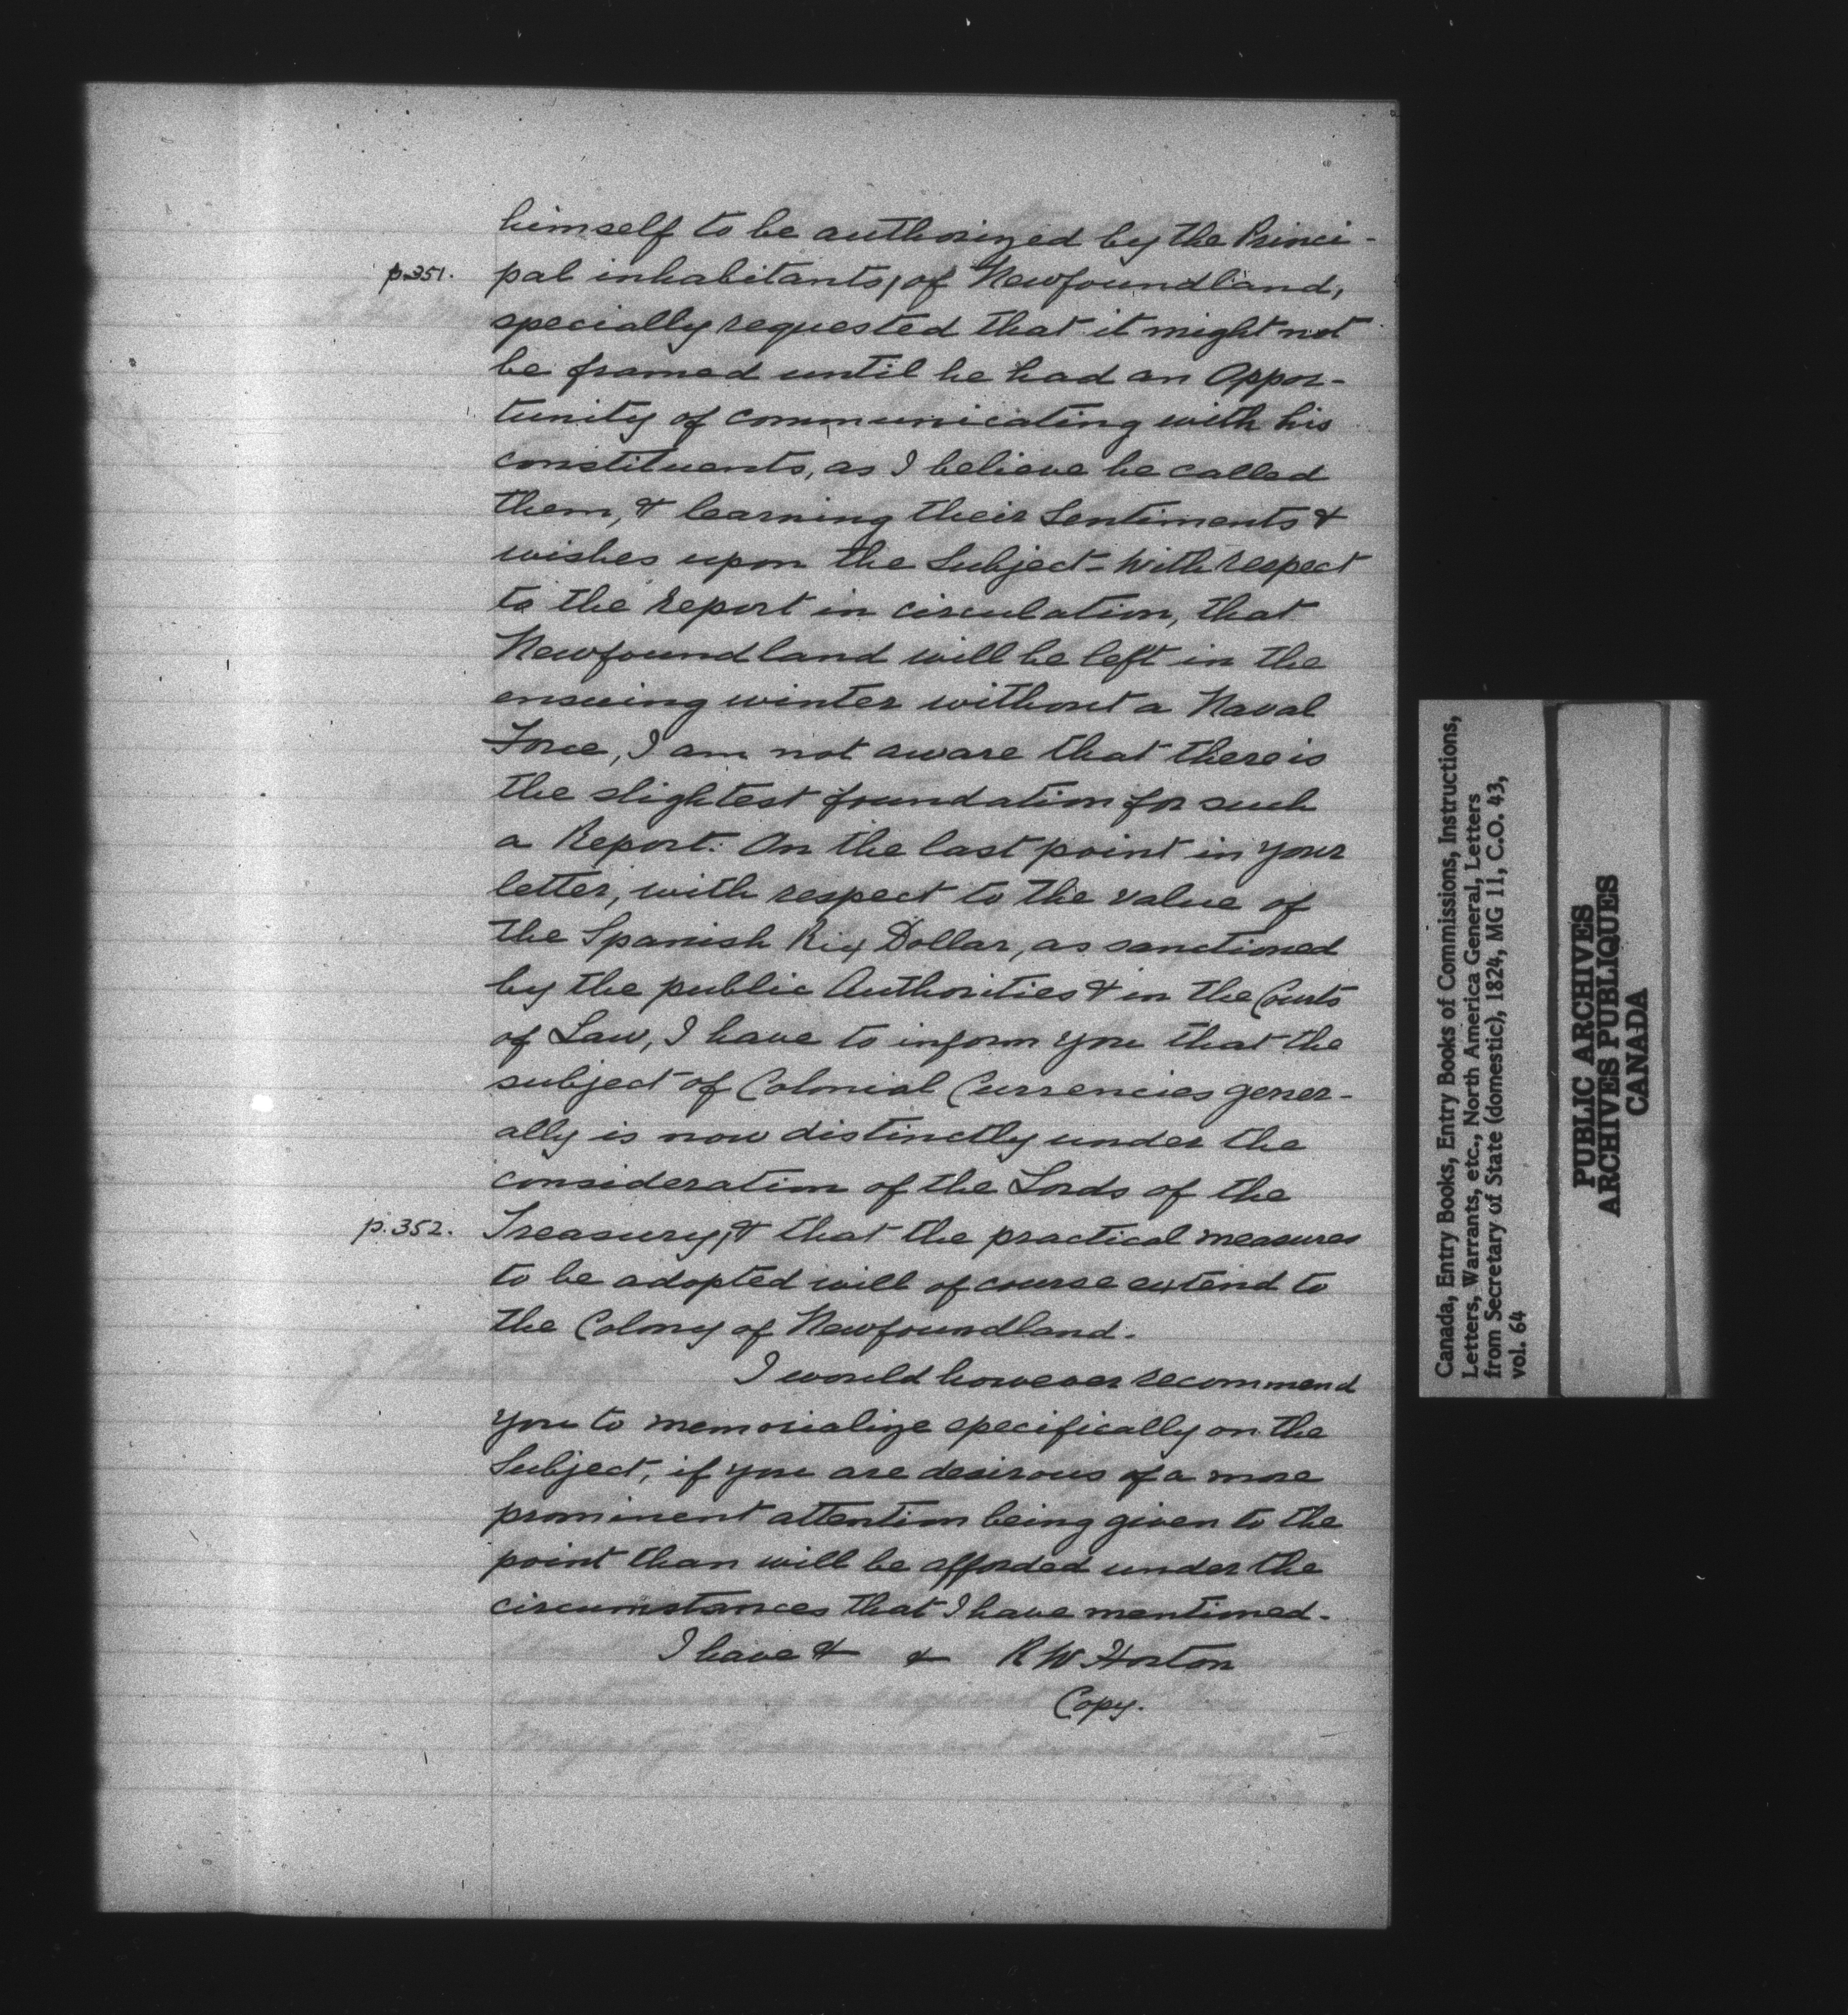 himself to be authorized by the Princi-
p.351.
pal inhabitants, of Newfoundland,
specially requested that it might not
be framed until he had an Oppor-
tunity of communicating with his
constituents, as I believe he called
them, & learning their Sentiments &
wishes upon the Subject - With respect
to the Report in circulation, that
Newfoundland will be left in the
ensuing winter without a Naval
Force, I am not aware that there is
the slightest foundation for such
a Report. On the last point in your
letter, with respect to the value of
the Spanish Rix Dollar, as sanctioned
by the public Authorities & in the Courts
of Law, I have to inform you that the
subject of Colonial Currencies gener-
ally is now distinctly under the
consideration of the Lords of the
p.352.
Treasury, & that the practical measures
to be adopted will of course extend to
the Colony of Newfoundland.
I would however recommend
you to memorialize specifically on the
Subject, if you are desirous of a more
prominent attention being given to the
point than will be afforded under the
circumstances that I have mentioned.
I have & & R W Horton
Copy.
Canada, Entry Books, Entry Books of Commissions, Instructions,
Letters, Warrants, etc., North America General, Letters
from Secretary of State (domestic), 1824, MG 11, C.O. 43,
vol. 64
PUBLIC ARCHIVES
ARCHIVES PUBLIQUES
CANADA